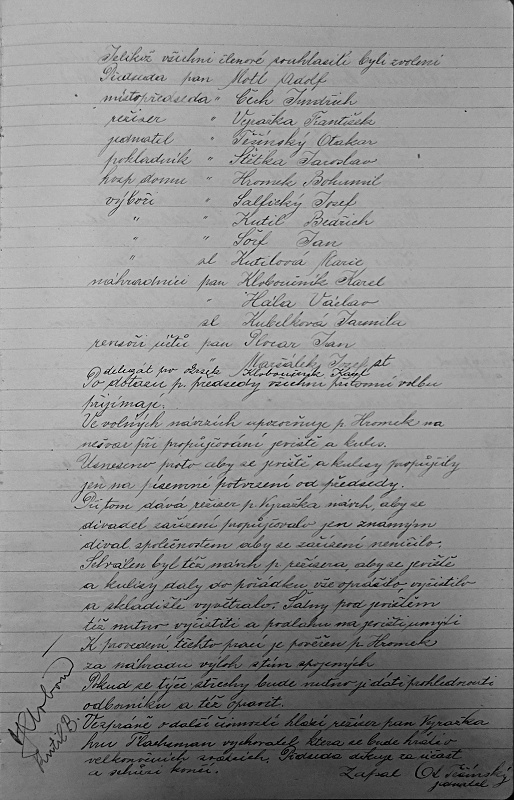 Jelikož všichni členové souhlasili byli zvoleni
Předseda pan Motl Adolf
místopředseda " Čech Jindřich
režiser " Vyražka František
jednatel " Těšínský Otakar
pokladník " Štětka Jaroslav
hosp. domu " Hromek Bohumil
výboři " Salfický Josef
" " Kutil Bedřich
" " Šorf Jan
" sl Kutilová Marie
náhradníci pan Kloboučník Karel
" Hála Václav
sl Kubelková Jarmila
revisoři účtů pan Plocar Jan
" Maršálek Josef st
delegát pro Okrsek Kloboučník Karel
Po dotazu p. předsedy všichni přítomní volbu
přijímají.
Ve volných návrzích upozorňuje p. Hromek na
nešvar při propůjčování jeviště a kulis.
Usneseno proto aby se jeviště a kulisy propůjčily
jen na písemné potvrzení od předsedy.
Při tom dává režiser p. Vyražka návrh, aby se
divadel zařízení propůjčovalo jen známým
dival společnostem aby se zařízení neničilo.
Schválen byl též návrh p. režisera aby se jeviště
a kulisy daly do pořádku vše oprášilo, vyčistilo
a skladiště vyvětralo. Šatny pod jevištěm
též nutno vyčistiti a podlahu na jevišti umýti
K provedení těchto prací je pověřen p. Hromek
za náhradu výloh s tím spojených
Pokud se týče střechy bude nutno ji dáti prohlédnouti
odborníku a též opravit.
Ve zprávě o další činnosti hlásí režiser pan Vyražka
hru Flachsman vychovatel která se bude hráti o
velkonočních svátcích. Předseda děkuje za účast
a schůzi končí. Zapsal Ot Těšínský
jednatel
Kutil B.